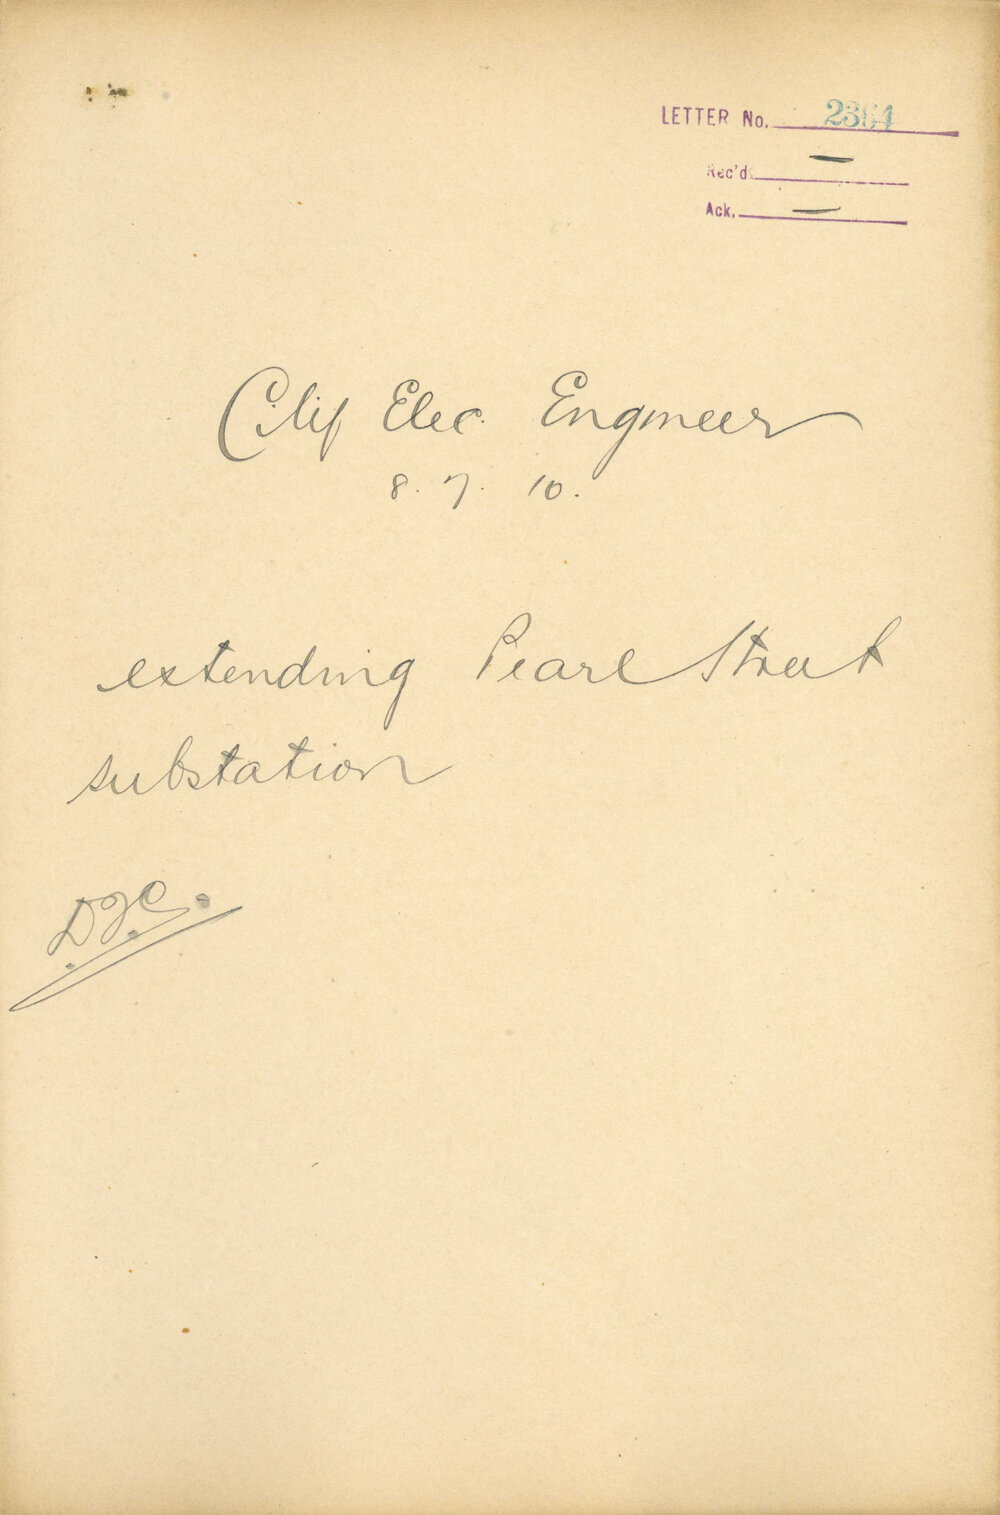 LETTER No. 2364
Rec'd. —
Ack. —
City Elec. Engineer
8. 7. 10.
extending Pearl Street
substation